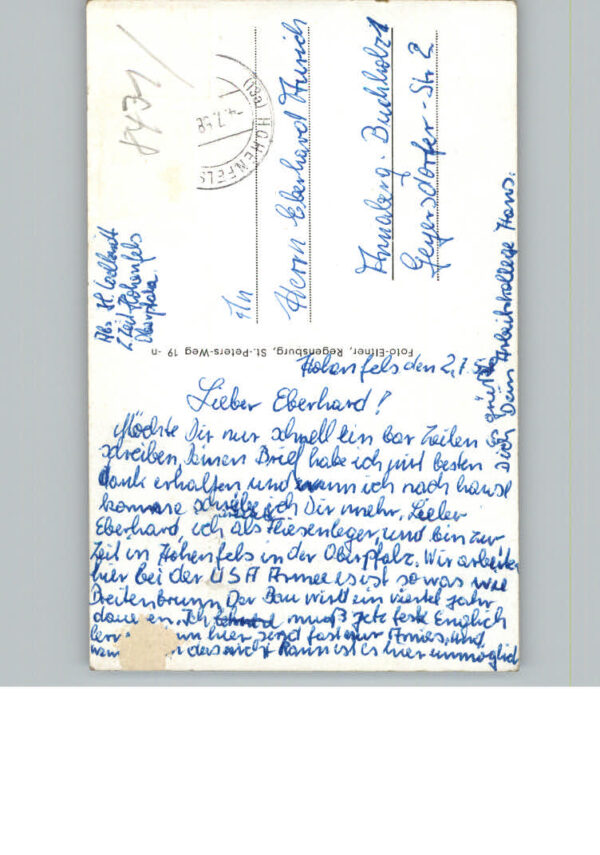 Hohenfels den 2.7.5
Lieber Eberhard!
Möchte Dir nur schnell ein bar Zeilen
schreiben, Deinen Brief habe ich mit besten
dank erhalten und wenn ich nach hause
komme schreibe ich Dir mehr. Lieber
Eberhard, ich als Fliesenleger, und bin zur
Zeit in Hohenfels in der Oberpfalz. Wir arbeiten
hier bei der USA Armee es ist so was wie
Breitenbrunn, Der Bau wird ein viertel jahr
dauern. Ich muß jetz fest Englich
hier sind fast nur Amies, und
das nicht kann ist es hier unmöglich
Es grüßt
Dich Dein Arbeitskollege Hans.
Foto-Eltner, Regensburg, St.-Peters-Weg 19 -n
Abs H.
z. Zeit Hohenfels
Oberpfalz
8431
HOHENFELS
4.7.58
An
Herrn Eberhard
Annaberg-Buchholz 1
Geyersdorfer-Str 2